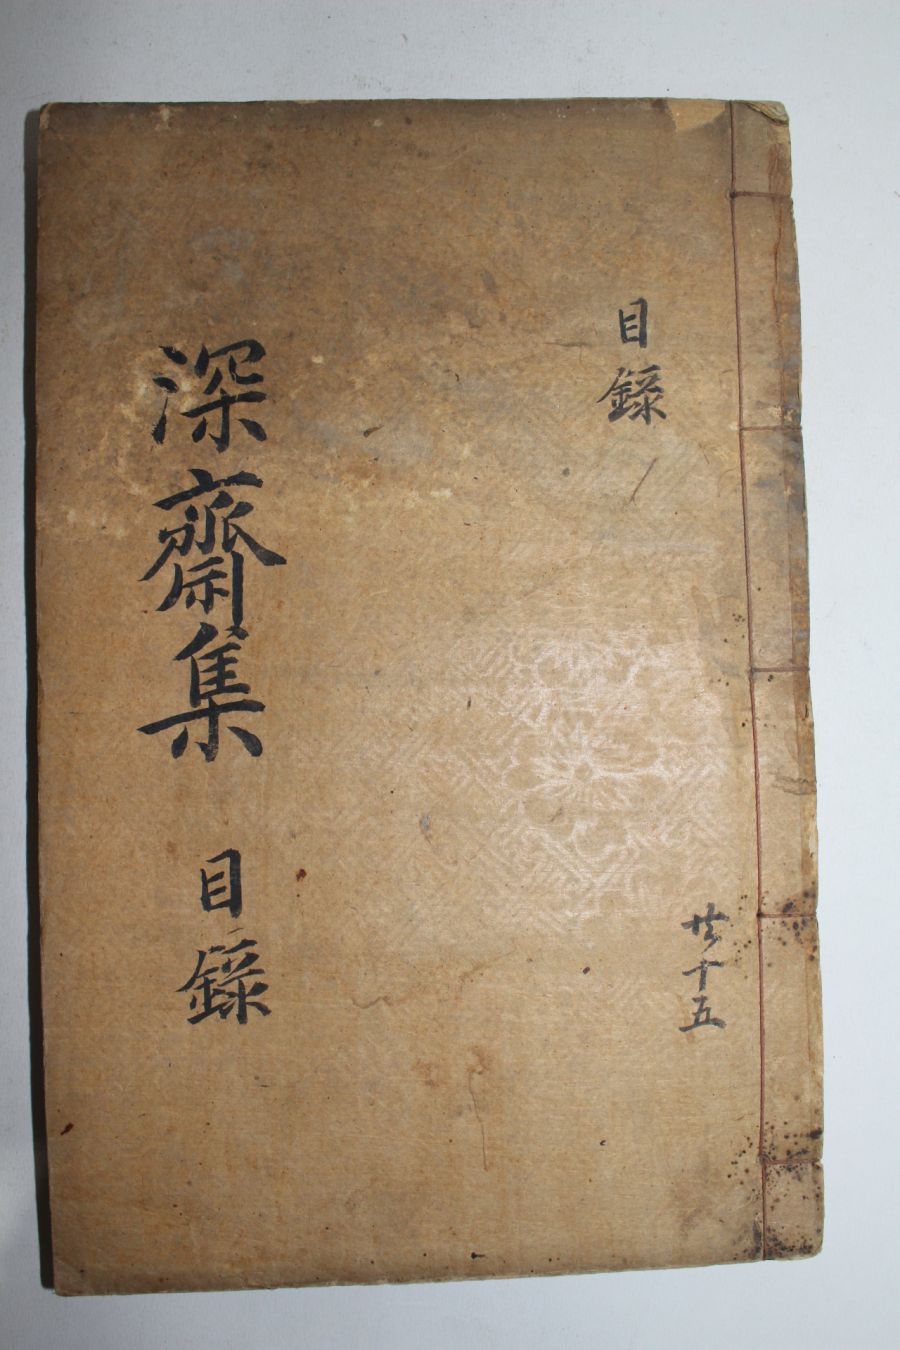 目錄
共十五
深齋集 目錄